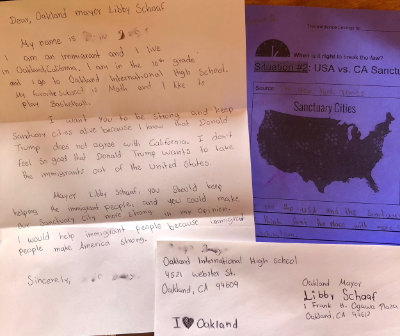 Dear, Oakland mayor Libby Schaaf
My name is
I am an immigrant and I live
in Oakland, California. I am in the 10th grade
and I go to Oakland International High School.
My favorite subject is Math and I like to
play Basketball.
I want you to be strong and keep
Sanctuary cities alive because I know that Donald
Trump does not agree with California. I don't
feel so good that Donald Trump wants to take
the immigrants out of the United States.
Mayor Libby Schaaf, you should keep
helping the immigrant people, and you could make
our Sanctuary City more strong. in my opinion.
I would help immigrant people because immigrant
people make America strong.
Sincerely,
This evidence belongs to:
When is it right to break the law?
Situation #2: USA vs. CA Sanctu
Source:
Sanctuary Cities
the USA and the
Oakland International High school
4521 Webster St.
Oakland, CA 94609
I Oakland
Oakland Mayor
Libby Schaaf
1 Frank H. Ogawa Plaza
Oakland, CA, 94612